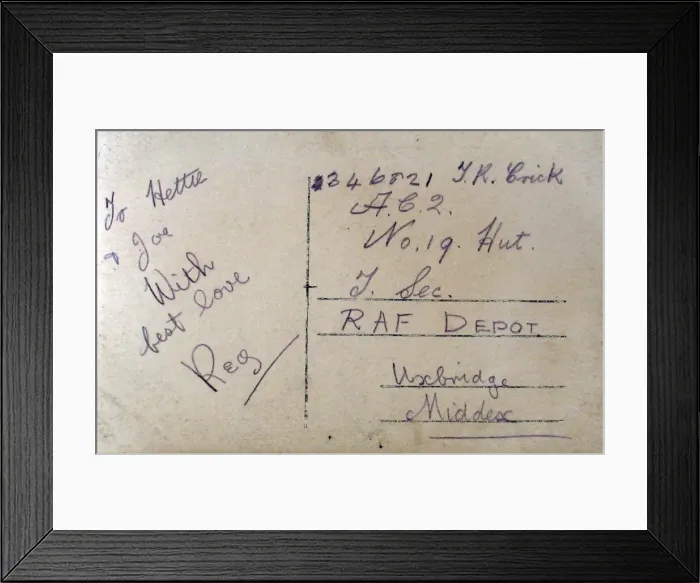 To Hettie
& Joe
With
best love
Reg
2346521 T.R. Crick
A.C.2.
No. 19. Hut.
T. Sec.
RAF DEPOT
Uxbridge
Middex